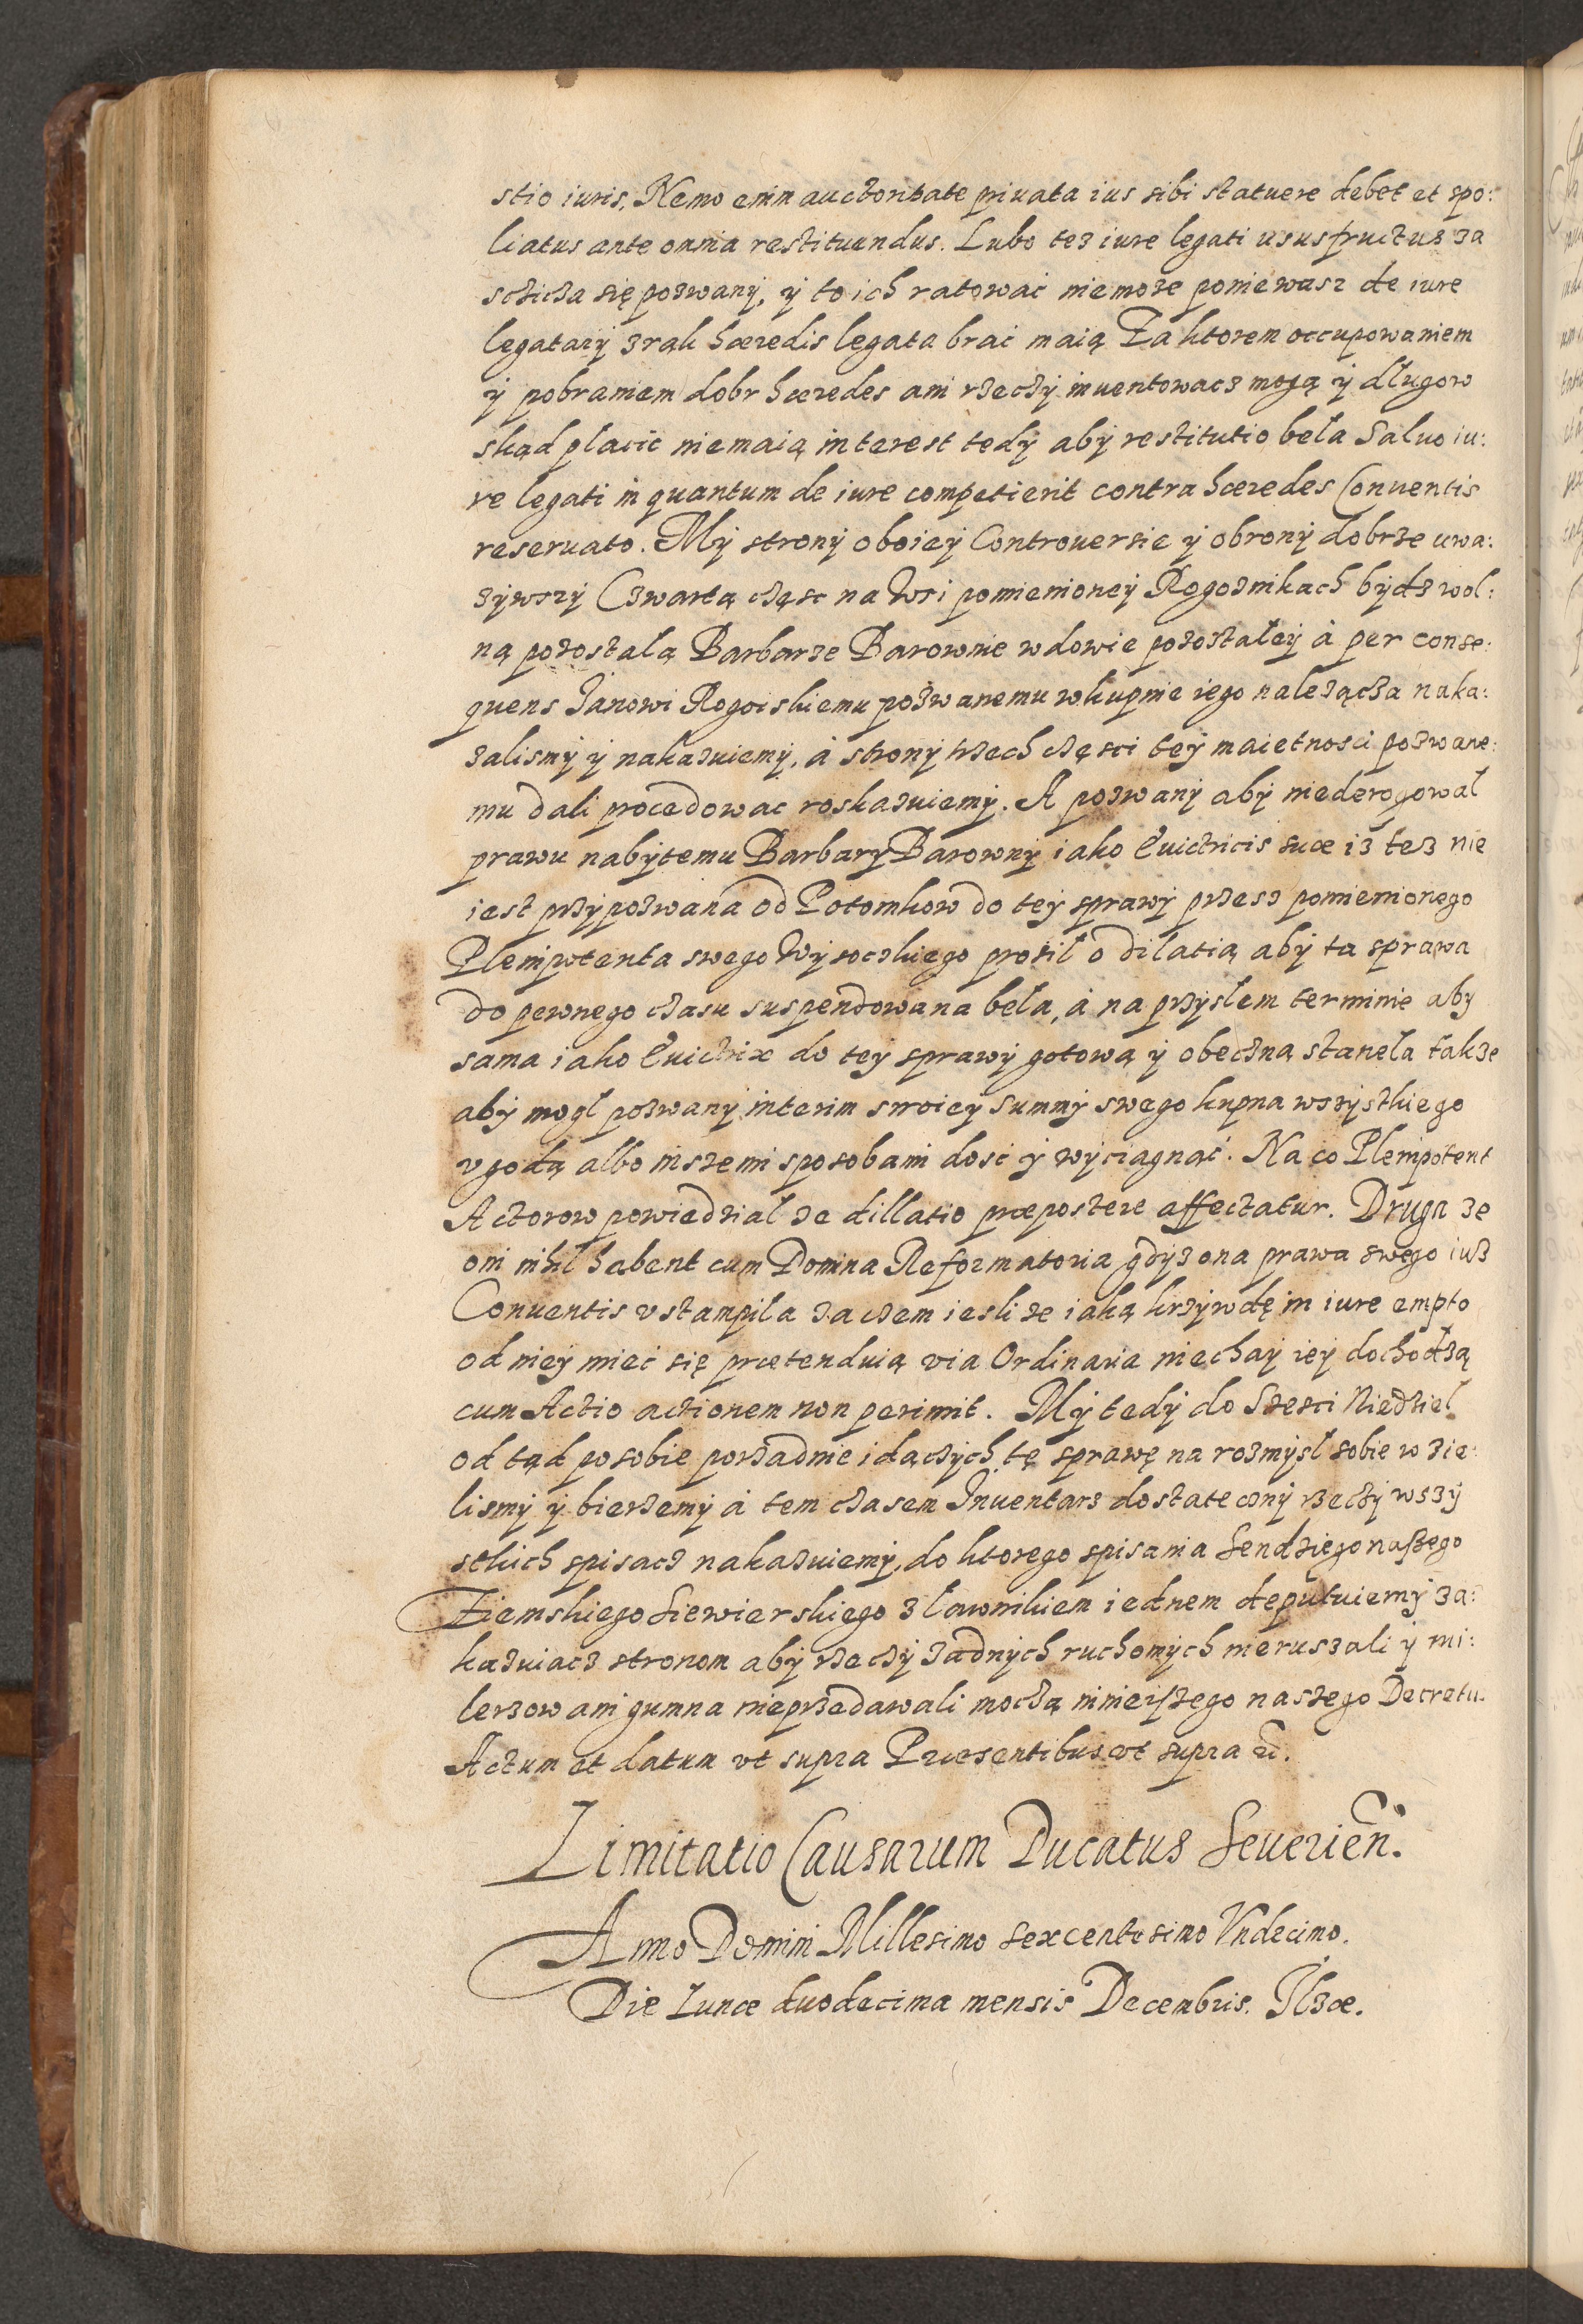 stio iuris. Nemo enim auctoritate priuata ius sibi statuere debet et spo:
liatus ante omnia restituendus. Lubo tez iure legati ususfructus za
sczicza się pozwany, y to ich ratowac niemoze poniewasz de iure
legatarij z rąk hæredis legata brać maią Za ktorem occupowaniem
y pobraniem dobr hæredes ani rzeczy inuentowacz mogą y dlugow
skąd placic niemaią interest tedy aby restitutio beła Saluo iu:
re legati in quantum de iure competierit contra hæredes Conuentis
reseruato. My strony oboiey Controuersie y obrony dobrze uwa:
zywszy Czwartą częsc na Wsi pomienioney Rogoznikach bydz wol:
ną pozostalą Barbarze Barownie wdowie pozostałey à per conse:
quens Janowi Rogoiskiemu pozwanemu w kupnie iego nalezącza naka:
zalismy y nakazuiemy, à strony trzech częsci tey maietnosci pozwane:
mu dali procedowac roskazuiemy. A pozwany aby niederogował
prawu nabytemu Barbary Barowny iako Euictricis suæ iz tez nie
iest przypozwana od Potomkow do tey sprawy przesz pomienionego
Plenipotenta swego Wysoczkiego prosił o dilatią aby ta sprawa
do pewnego czasu suspendowana beła, à na przyslem terminie aby
sama iako Euictrix do tey sprawy gotową y obeczną stanęla takze
aby mogl pozwany interim swoiey Summy swego kupna wszystkiego
vgodą albo inszemi sposobami dosc y wyciagnąć. Na co Plenipotent
Actorow powiedzial ze dillatio præpostere affectatur. Druga ze
oni nihil habent cum Domina Reformatoria gdyz ona prawa swego iuz
Conuentis vstampila zaczem iesli ze iaką krzywdę in iure empto
od niey miec się prætenduią via Ordinaria niechay iey dochodzą
cum Actio actionem non perimit. My tedy do Szesci Niedziel
od tąd po sobie porzadnie idączych tę sprawę na rozmysl sobie w zie:
lismy y bierzemy à tem czasem Inuentarz dostateczny rzeczy wszy
stkich spisacz nakazuiemy, do ktorego spisania Sendziego naszego
Ziemskiego Siewierskiego z lawnikiem iednem deputuiemy za:
kazuiacz stronom aby rzeczy żadnych ruchomych nieruszali y mi:
lerzow ani gumna nieprzedawali moczą ninieiszego naszego Decretu.
Actum et datum vt supra Præsentibus vt supra &c.
Limitatio Causarum Ducatus Seuerien.
Anno Domini Millesimo Sexcentesimo Vndecimo.
Die Lunæ duodecima mensis Decembris. Ilzæ.